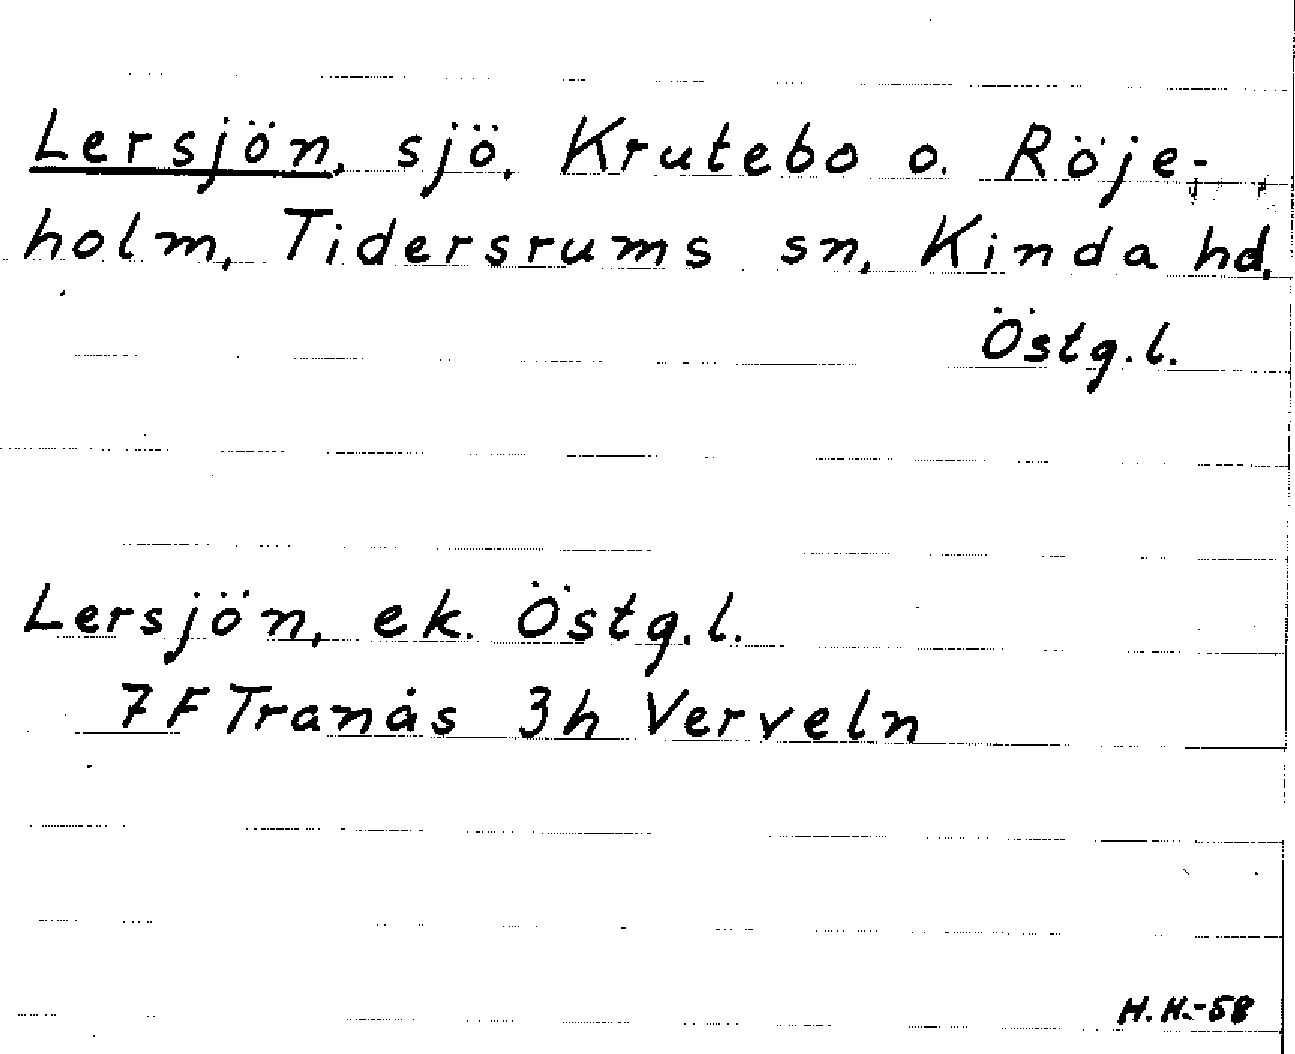 Lersjön, sjö, Krutebo o. Röje-
holm, Tidersrums sn, Kinda hd,
Östg.l.
Lersjön, ek. Östg.l.
7F Tranås 3h Verveln
H.H.-58